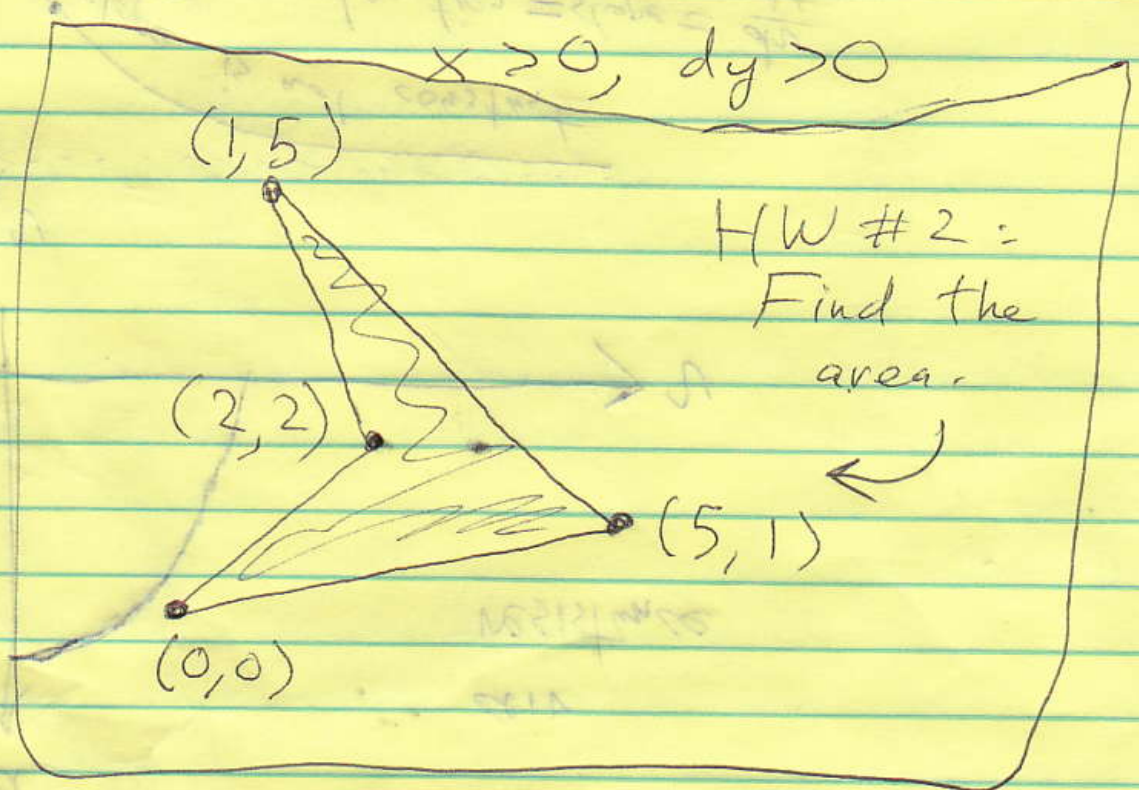 x > 0, dy > 0
(1, 5)
HW # 2 :
Find the
area.
(2, 2)
(5, 1)
(0, 0)